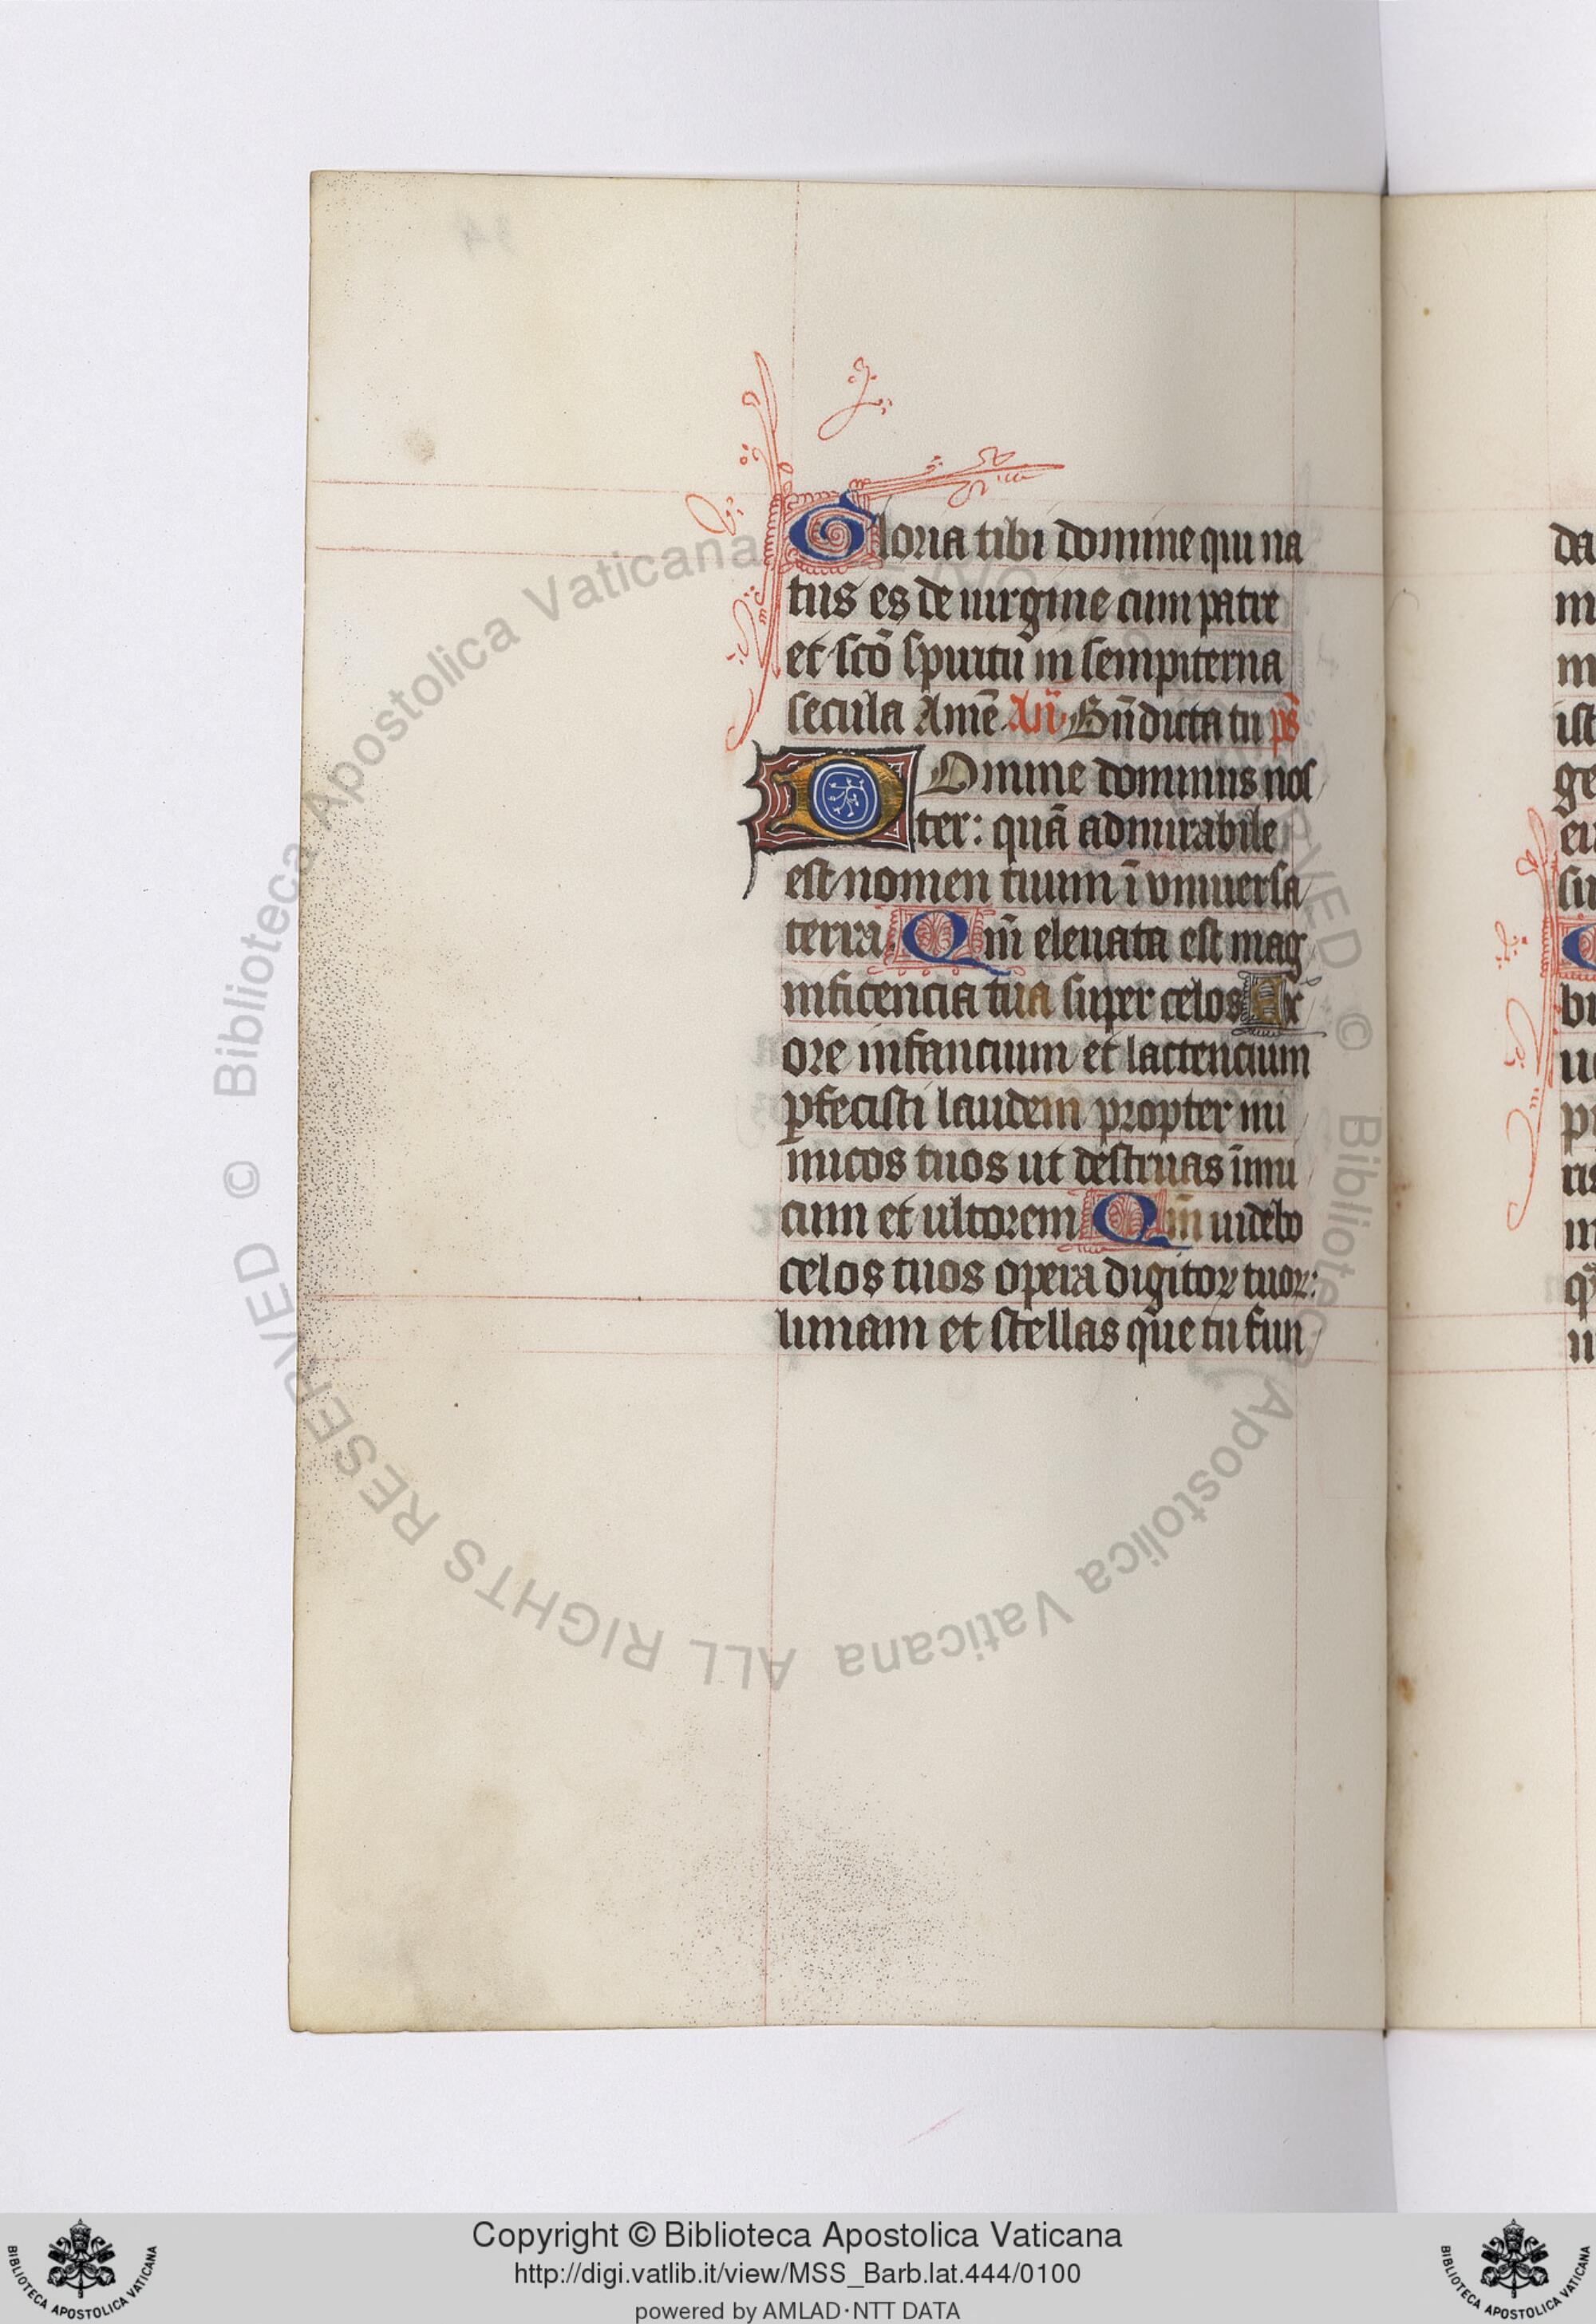 Gloria tibi domine qui na
tus es de uirgine cum patre
et sc̄o spiritū in sempiterna
secula Amē Añ Bn̄dicta tu p̄s
Domine dominus nos
ter: quā admirabile
est nomen tuum ī vniuersa
terra Qm̄ eleuata est mag
nificencia tua super celos Ex
ore infancium et lactencium
ꝑfecisti laudem propter ini
micos tuos ut destruas īimi
cum et ultorem Qm̄ uidebo
celos tuos opera digitoꝝ tuoꝝ:
lunam et stellas que tu fun
Biblioteca Apostolica Vaticana © Biblioteca Apostolica Vaticana ALL RIGHTS RESERVED ©
Copyright © Biblioteca Apostolica Vaticana
http://digi.vatlib.it/view/MSS_Barb.lat.444/0100
powered by AMLAD·NTT DATA
BIBLIOTECA APOSTOLICA VATICANA
BIBLIOTECA APOSTOLICA VATICANA